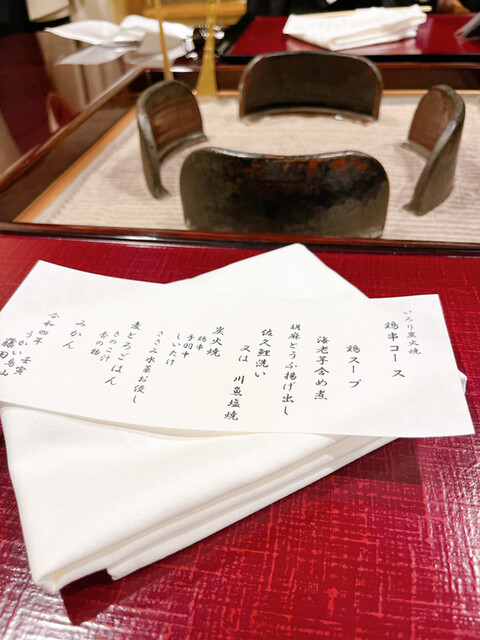 いろり炭火焼
鶏串コース
鶏スープ
海老芋含め煮
胡麻どうふ揚げ出し
佐久鯉洗い
又は 川魚塩焼
炭火焼
鶏串
手羽中
しいたけ
ささみ水菜お浸し
麦とろごはん
きのこ汁
香の物
みかん
令和四年 壬寅
うかい鳥山